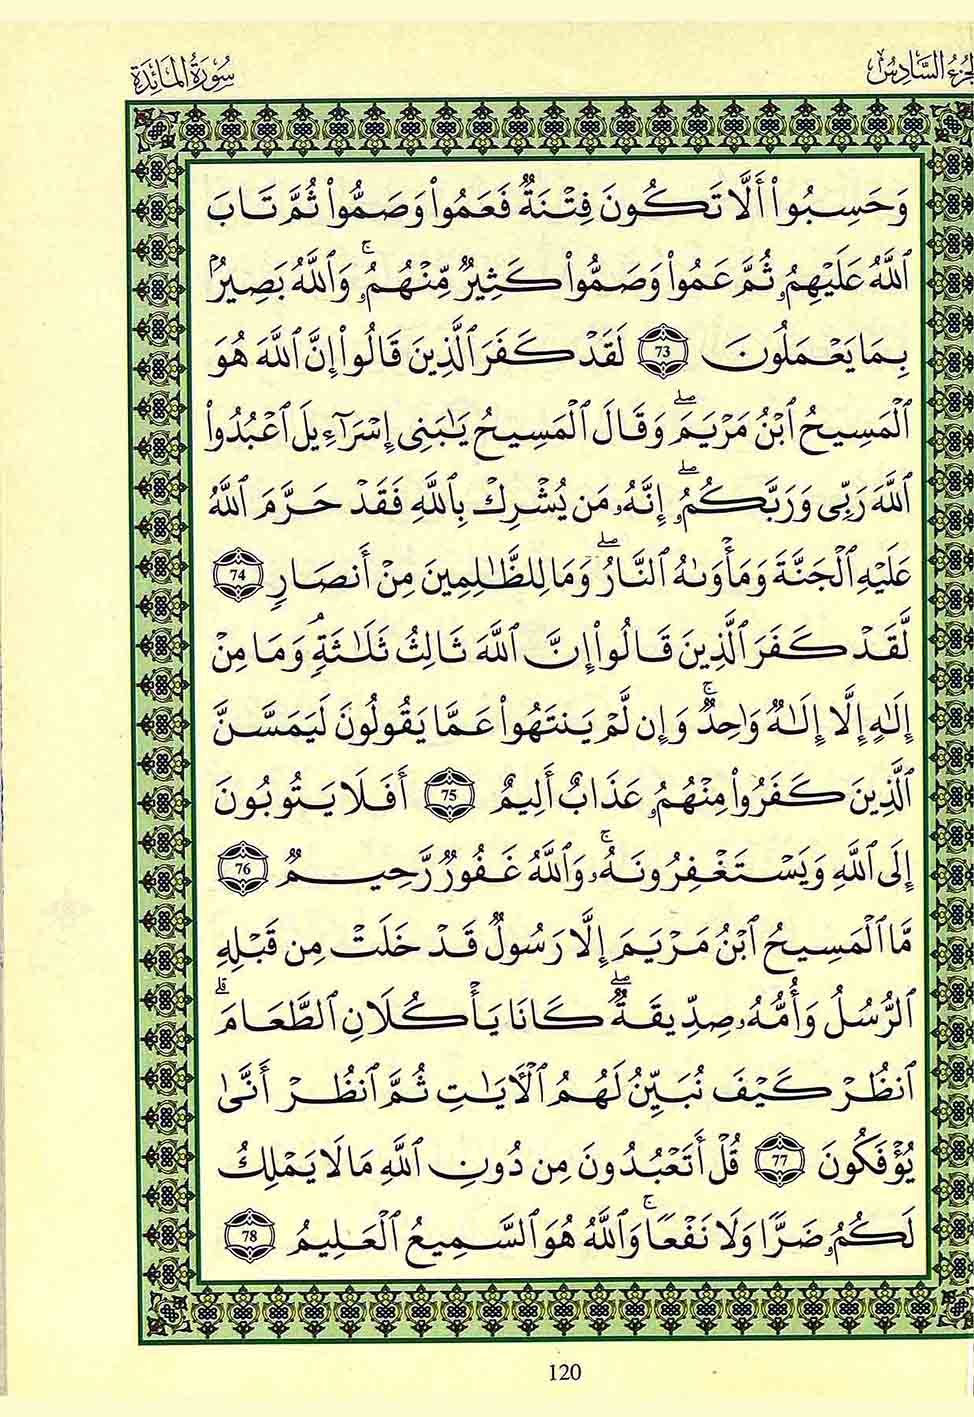 الجزء السادس
سورة المائدة
وَحَسِبُوٓا۟ أَلَّا تَكُونَ فِتْنَةٌ فَعَمُوا۟ وَصَمُّوا۟ ثُمَّ تَابَ
ٱللَّهُ عَلَيْهِمُۥ ثُمَّ عَمُوا۟ وَصَمُّوا۟ كَثِيرٌ مِّنْهُمُۥۚ وَٱللَّهُ بَصِيرٌۢ
بِمَا يَعْمَلُونَ 73 لَقَدْ كَفَرَ ٱلَّذِينَ قَالُوٓا۟ إِنَّ ٱللَّهَ هُوَ
ٱلْمَسِيحُ ٱبْنُ مَرْيَمَۖ وَقَالَ ٱلْمَسِيحُ يَٰبَنِى إِسْرَآءِيلَ ٱعْبُدُوا۟
ٱللَّهَ رَبِّى وَرَبَّكُمُۥۖ إِنَّهُۥ مَن يُشْرِكْ بِٱللَّهِ فَقَدْ حَرَّمَ ٱللَّهُ
عَلَيْهِ ٱلْجَنَّةَ وَمَأْوَىٰهُ ٱلنَّارُۖ وَمَا لِلظَّٰلِمِينَ مِنْ أَنصَارٍ 74
لَّقَدْ كَفَرَ ٱلَّذِينَ قَالُوٓا۟ إِنَّ ٱللَّهَ ثَالِثُ ثَلَٰثَةٍۘ وَمَا مِنْ
إِلَٰهٍ إِلَّا إِلَٰهٌ وَٰحِدٌۚ وَإِن لَّمْ يَنتَهُوا۟ عَمَّا يَقُولُونَ لَيَمَسَّنَّ
ٱلَّذِينَ كَفَرُوا۟ مِنْهُمُۥ عَذَابٌ أَلِيمٌ 75 أَفَلَا يَتُوبُونَ
إِلَى ٱللَّهِ وَيَسْتَغْفِرُونَهُۥۚ وَٱللَّهُ غَفُورٌ رَّحِيمٌ 76
مَّا ٱلْمَسِيحُ ٱبْنُ مَرْيَمَ إِلَّا رَسُولٌ قَدْ خَلَتْ مِن قَبْلِهِ
ٱلرُّسُلُ وَأُمُّهُۥ صِدِّيقَةٌۖ كَانَا يَأْكُلَانِ ٱلطَّعَامَۗ
ٱنظُرْ كَيْفَ نُبَيِّنُ لَهُمُ ٱلْءَايَٰتِ ثُمَّ ٱنظُرْ أَنَّىٰ
يُؤْفَكُونَ 77 قُلْ أَتَعْبُدُونَ مِن دُونِ ٱللَّهِ مَا لَا يَمْلِكُ
لَكُمُۥ ضَرًّا وَلَا نَفْعًاۚ وَٱللَّهُ هُوَ ٱلسَّمِيعُ ٱلْعَلِيمُ 78
120